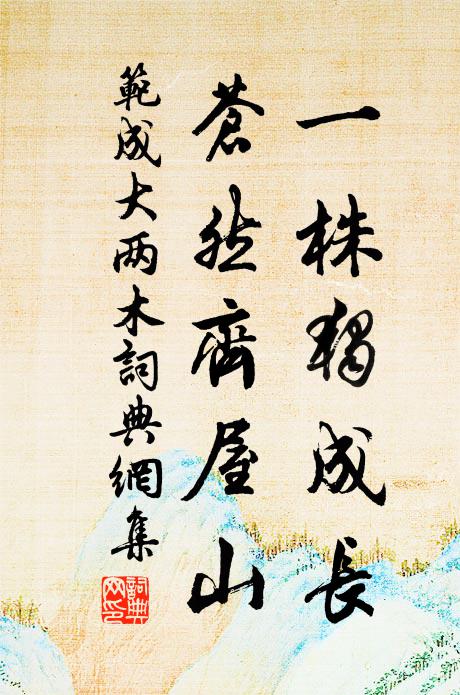 一株独成長
蒼然齊屋山
範成大两木詞典網集
詞典網印